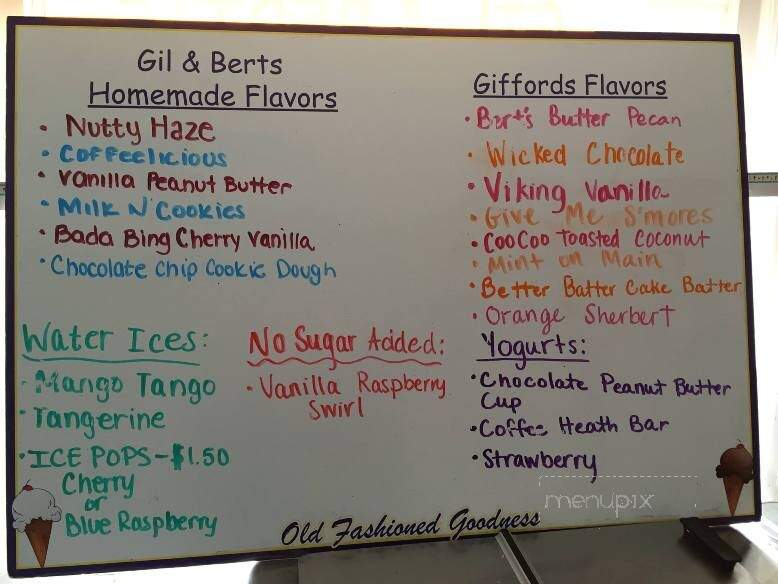 Gil & Berts
Homemade Flavors
• Nutty Haze
• Coffeelicious
• Vanilla Peanut Butter
• Milk N' Cookies
• Bada Bing Cherry Vanilla
• Chocolate Chip Cookie Dough
Giffords Flavors
• Bart's Butter Pecan
• Wicked Chocolate
• Viking Vanilla
• Give Me S'mores
• CooCoo Toasted Coconut
• Mint on Main
• Better Batter Cake Batter
• Orange Sherbert
Water Ices:
• Mango Tango
• Tangerine
• ICE POPS - $1.50
Cherry
or
Blue Raspberry
No Sugar Added:
• Vanilla Raspberry
Swirl
Yogurts:
• Chocolate Peanut Butter
Cup
• Coffee Heath Bar
• Strawberry
menupix
Old Fashioned Goodness